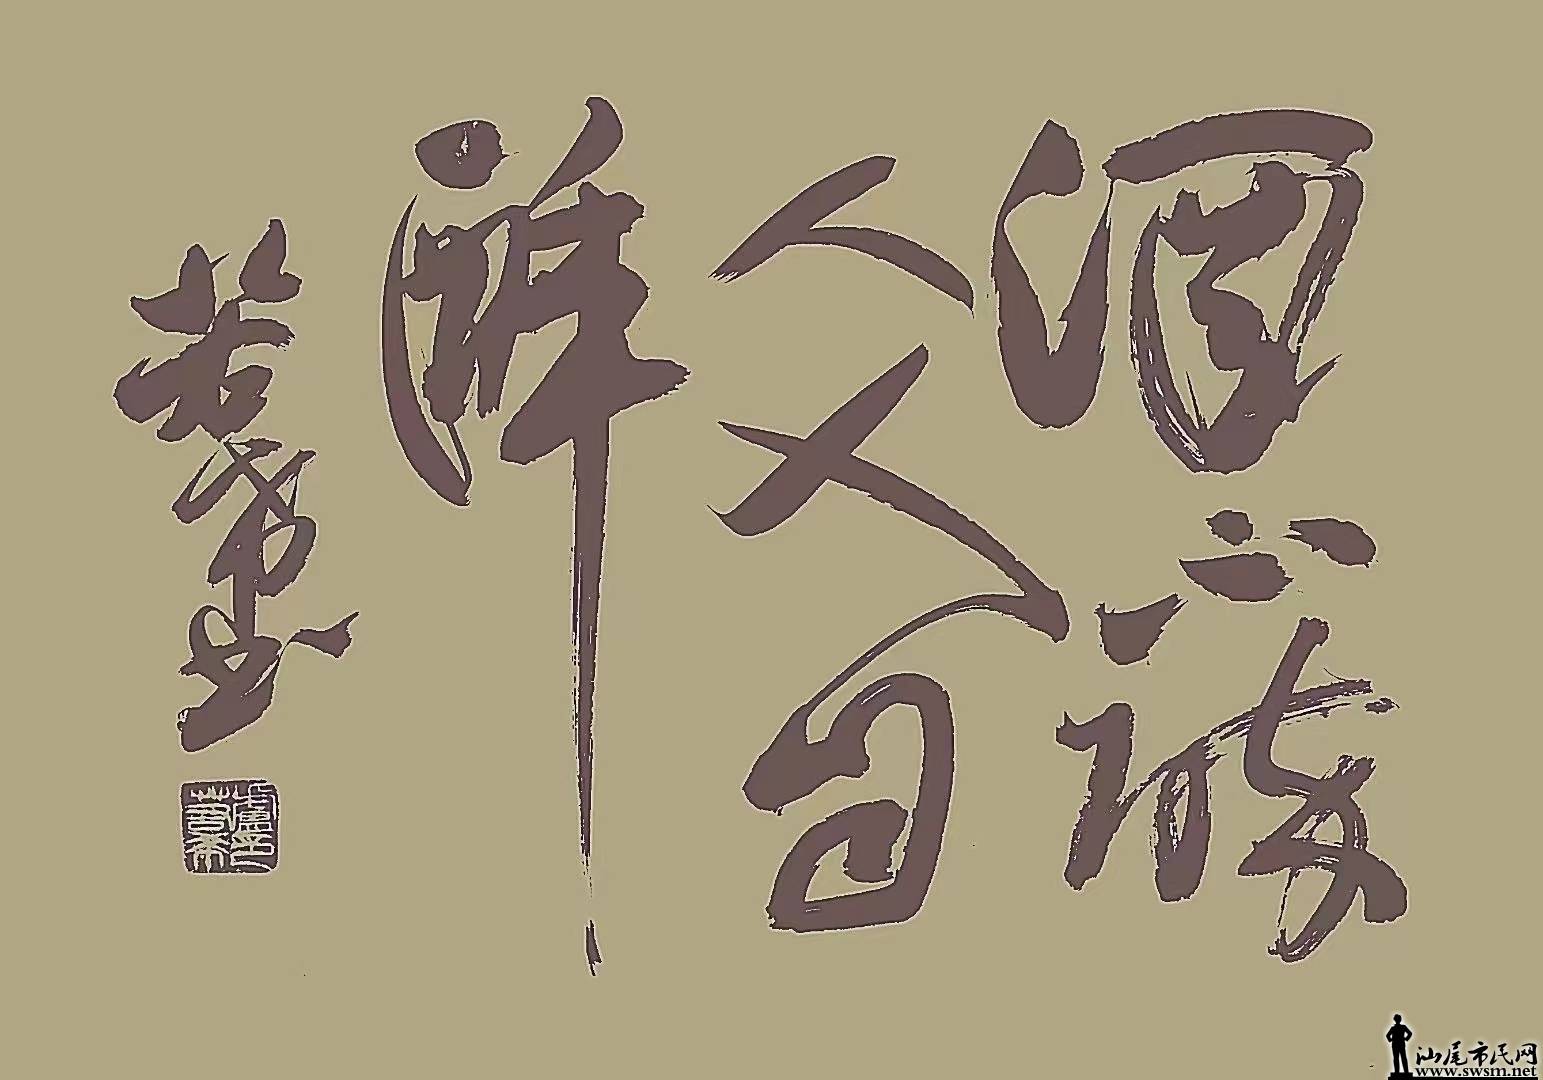 酒不醉
人又自
醉
若 書
汕尾市民网
www.swsm.net